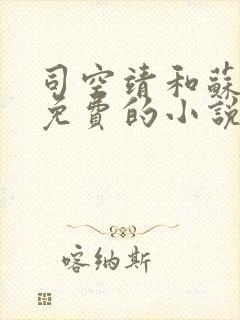 司空靖和蘇
免費的小說
喀納斯